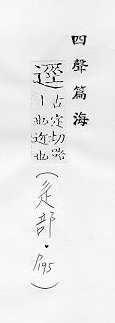 四聲篇海
古定切路
丨也近也
(辵部.P195)